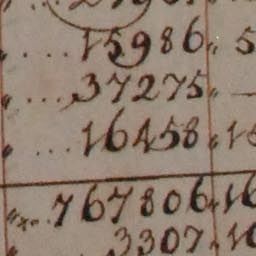 .... 15986 „ 5
„ .... 37275 „ —
„ ... 16458 „ 1
„ .. 767806 „ 16
3307 „ 10